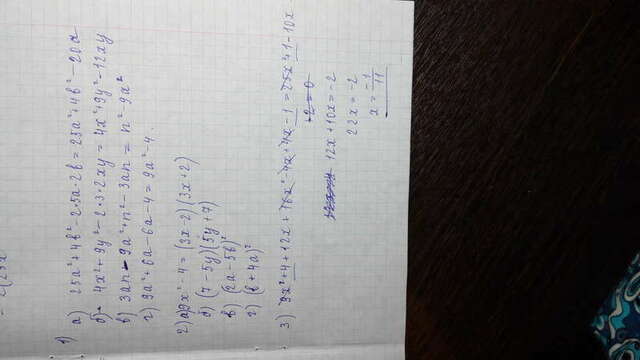 1)
а) 25a²+4b²-2·5a·2b = 25a²+4b²-20a
б) 4x²+9y²-2·3·2xy = 4x²+9y²-12xy
в) 3an-9a²+n²-3an = n²-9a²
г) 9a²+6a-6a-4 = 9a²-4.
2) а) 9x²-4 = (3x-2)(3x+2)
б) (7-5y)(5y+7)
в) (2a-5b)²
г) (b+4a)²
3) 9x²+4+12x+16x²-4x+4x-1 = 25x²+1-10x
12x+10x = -2
22x = -2
x = -1/11